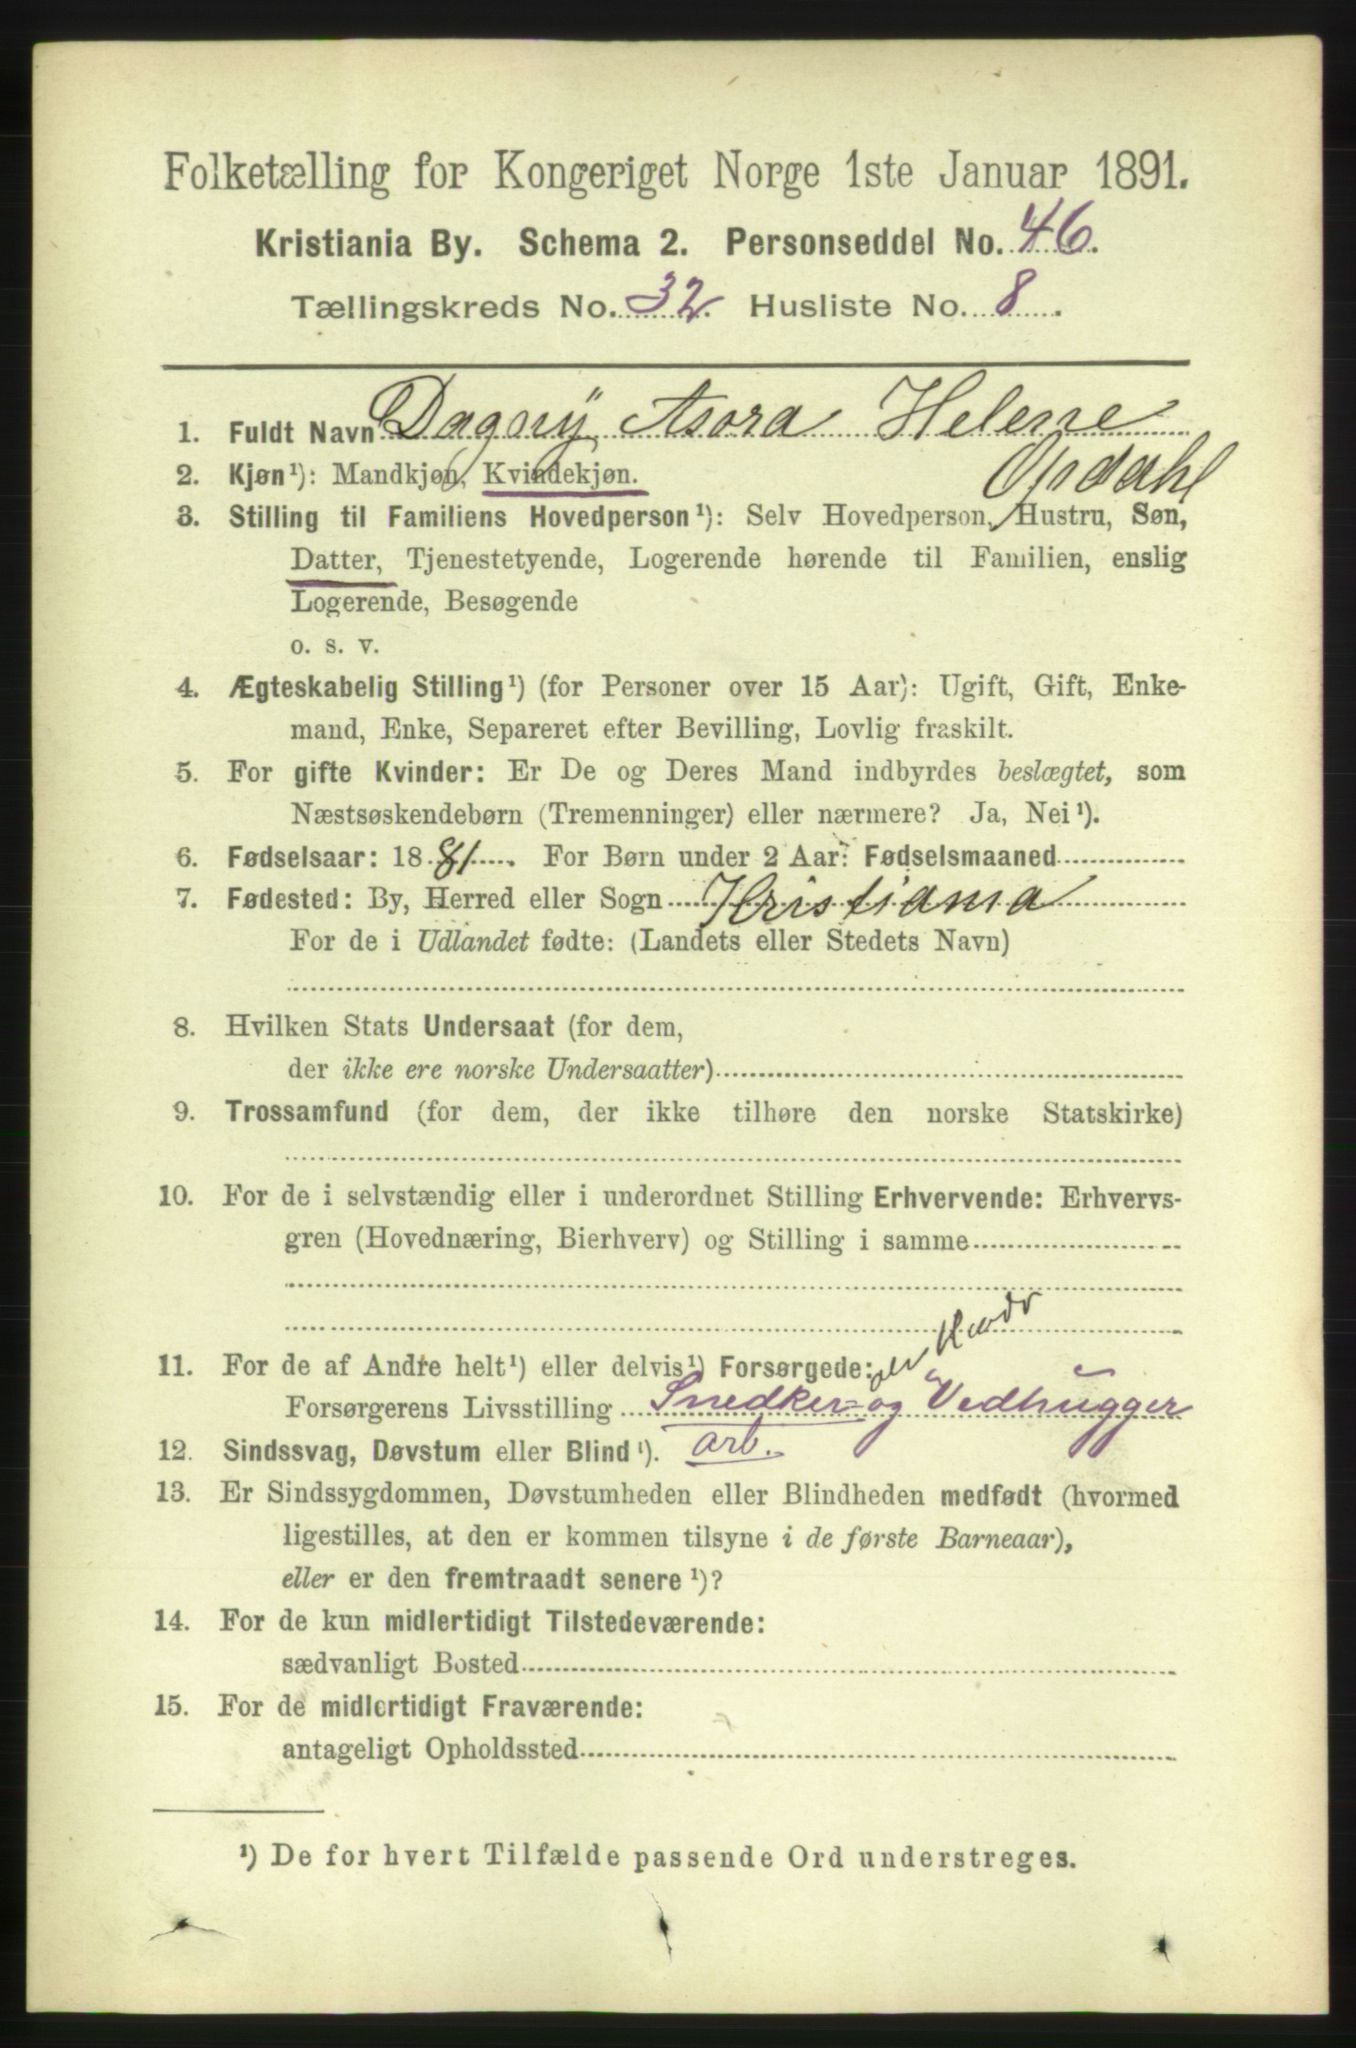 Folketælling for Kongeriget Norge 1ste Januar 1891.
Kristiania By. Schema 2. Personseddel No. 46.
Tællingskreds No. 32. Husliste No. 8.
1. Fuldt Navn Dagny Asora Helene
Opdahl
2. Kjøn¹): Mandkjøn, Kvindekjøn.
3. Stilling til Familiens Hovedperson¹): Selv Hovedperson, Hustru, Søn,
Datter, Tjenestetyende, Logerende hørende til Familien, enslig
Logerende, Besøgende
o. s. v.
4. Ægteskabelig Stilling¹) (for Personer over 15 Aar): Ugift, Gift, Enke-
mand, Enke, Separeret efter Bevilling, Lovlig fraskilt.
5. For gifte Kvinder: Er De og Deres Mand indbyrdes beslægtet, som
Næstsøskendebørn (Tremenninger) eller nærmere? Ja, Nei¹).
6. Fødselsaar: 1881. For Børn under 2 Aar: Fødselsmaaned
7. Fødested: By, Herred eller Sogn Kristiania
For de i Udlandet fødte: (Landets eller Stedets Navn)
8. Hvilken Stats Undersaat (for dem,
der ikke ere norske Undersaatter)
9. Trossamfund (for dem, der ikke tilhøre den norske Statskirke)
10. For de i selvstændig eller i underordnet Stilling Erhvervende: Erhvervs-
gren (Hovednæring, Bierhverv) og Stilling i samme
11. For de af Andre helt¹) eller delvis¹) Forsørgede:
Forsørgerens Livsstilling Snedker- og Vedhugger
arb.
12. Sindssvag, Døvstum eller Blind¹).
13. Er Sindssygdommen, Døvstumheden eller Blindheden medfødt (hvormed
ligestilles, at den er kommen tilsyne i de første Barneaar),
eller er den fremtraadt senere¹)?
14. For de kun midlertidigt Tilstedeværende:
sædvanligt Bosted
15. For de midlertidigt Fraværende:
antageligt Opholdssted
¹) De for hvert Tilfælde passende Ord understreges.